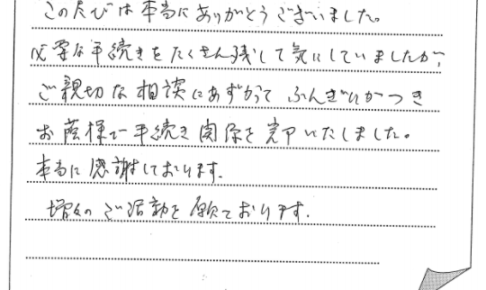 このたびは本当にありがとうございました。
必要な手続きをたくさん残して気にしていましたが、
ご親切な相談にあずかって ふんぎりがつき
お蔭様で手続き関係を完了いたしました。
本当に感謝しております。
増々のご活動を願っております。